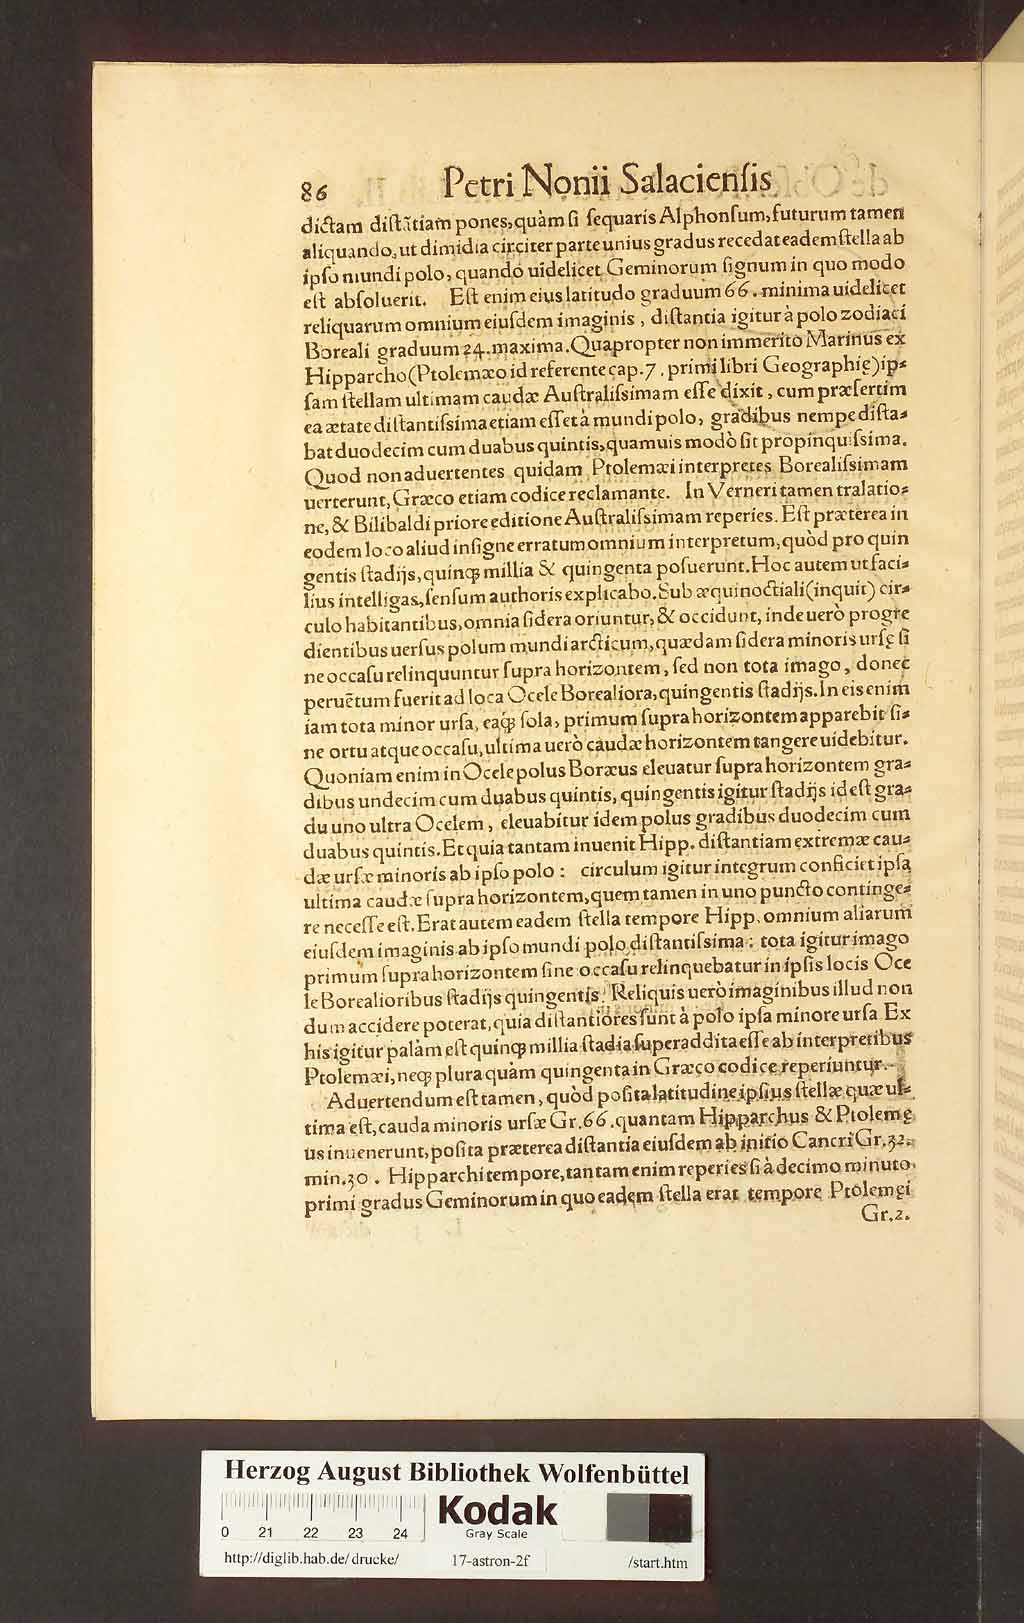 86 Petri Nonii Salaciensis
dictam distātiam pones, quàm si sequaris Alphonsum, futurum tamen
aliquando, ut dimidia circiter parte unius gradus recedat eadem stella ab
ipso mundi polo, quando uidelicet Geminorum signum in quo modo
est absoluerit. Est enim eius latitudo graduum 66. minima uidelicet
reliquarum omnium eiusdem imaginis, distantia igitur à polo zodiaci
Boreali graduum 24. maxima. Quapropter non immeritò Marinus ex
Hipparcho (Ptolemæo id referente cap. 7. primi libri Geographię) ip=
sam stellam ultimam caudæ Australissimam esse dixit, cum præsertim
ea ætate distantissima etiam esset à mundi polo, gradibus nempe dista=
bat duodecim cum duabus quintis, quamuis modò sit propinquissima.
Quod non aduertentes quidam Ptolemæi interpretes Borealissimam
uerterunt, Græco etiam codice reclamante. In Verneri tamen tralatio=
ne, & Bilibaldi priore editione Australissimam reperies. Est præterea in
eodem loco aliud insigne erratum omnium interpretum, quòd pro quin
gentis stadijs, quinq; millia & quingenta posuerunt. Hoc autem ut faci=
lius intelligas, sensum authoris explicabo. Sub æquinoctiali (inquit) cir=
culo habitantibus, omnia sidera oriuntur, & occidunt, inde uerò progre
dientibus uersus polum mundi arcticum, quædam sidera minoris ursę si
ne occasu relinquuntur supra horizontem, sed non tota imago, donec
peruētum fuerit ad loca Ocele Borealiora, quingentis stadijs. In eis enim
iam tota minor ursa, eaq; sola, primum supra horizontem apparebit si=
ne ortu atque occasu, ultima uerò caudæ horizontem tangere uidebitur.
Quoniam enim in Ocele polus Boræus eleuatur supra horizontem gra=
dibus undecim cum duabus quintis, quingentis igitur stadijs id est gra=
du uno ultra Ocelem, eleuabitur idem polus gradibus duodecim cum
duabus quintis. Et quia tantam inuenit Hipp. distantiam extremæ cau=
dæ ursæ minoris ab ipso polo: circulum igitur integrum conficiet ipsa
ultima caudæ supra horizontem, quem tamen in uno puncto continge=
re necesse est. Erat autem eadem stella tempore Hipp. omnium aliarum
eiusdem imaginis ab ipso mundi polo distantissima: tota igitur imago
primum supra horizontem sine occasu relinquebatur in ipsis locis Oce
le Borealioribus stadijs quingentis. Reliquis uerò imaginibus illud non
dum accidere poterat, quia distantiores sunt à polo ipsa minore ursa Ex
his igitur palàm est quinq; millia stadia superaddita esse ab interpretibus
Ptolemæi, neq; plura quàm quingenta in Græco codice reperiuntur.
Aduertendum est tamen, quòd posita latitudine ipsius stellæ quæ ul=
tima est, cauda minoris ursæ Gr. 66. quantam Hipparchus & Ptolemę
us inuenerunt, posita præterea distantia eiusdem ab initio Cancri Gr. 32.
min. 30. Hipparchi tempore, tantam enim reperies si à decimo minuto
primi gradus Geminorum in quo eadem stella erat tempore Ptolemęi
Gr. 2.
Herzog August Bibliothek Wolfenbüttel
Kodak
Gray Scale
0 21 22 23 24
http://diglib.hab.de/drucke/ 17-astron-2f /start.htm